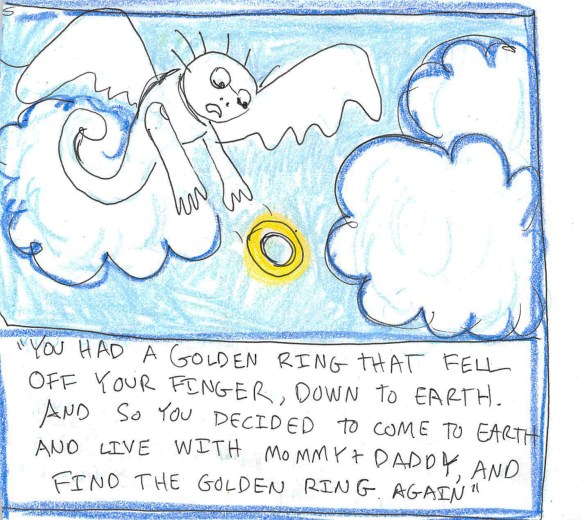 "YOU HAD A GOLDEN RING THAT FELL
OFF YOUR FINGER, DOWN TO EARTH.
AND SO YOU DECIDED TO COME TO EARTH
AND LIVE WITH MOMMY + DADDY, AND
FIND THE GOLDEN RING AGAIN"